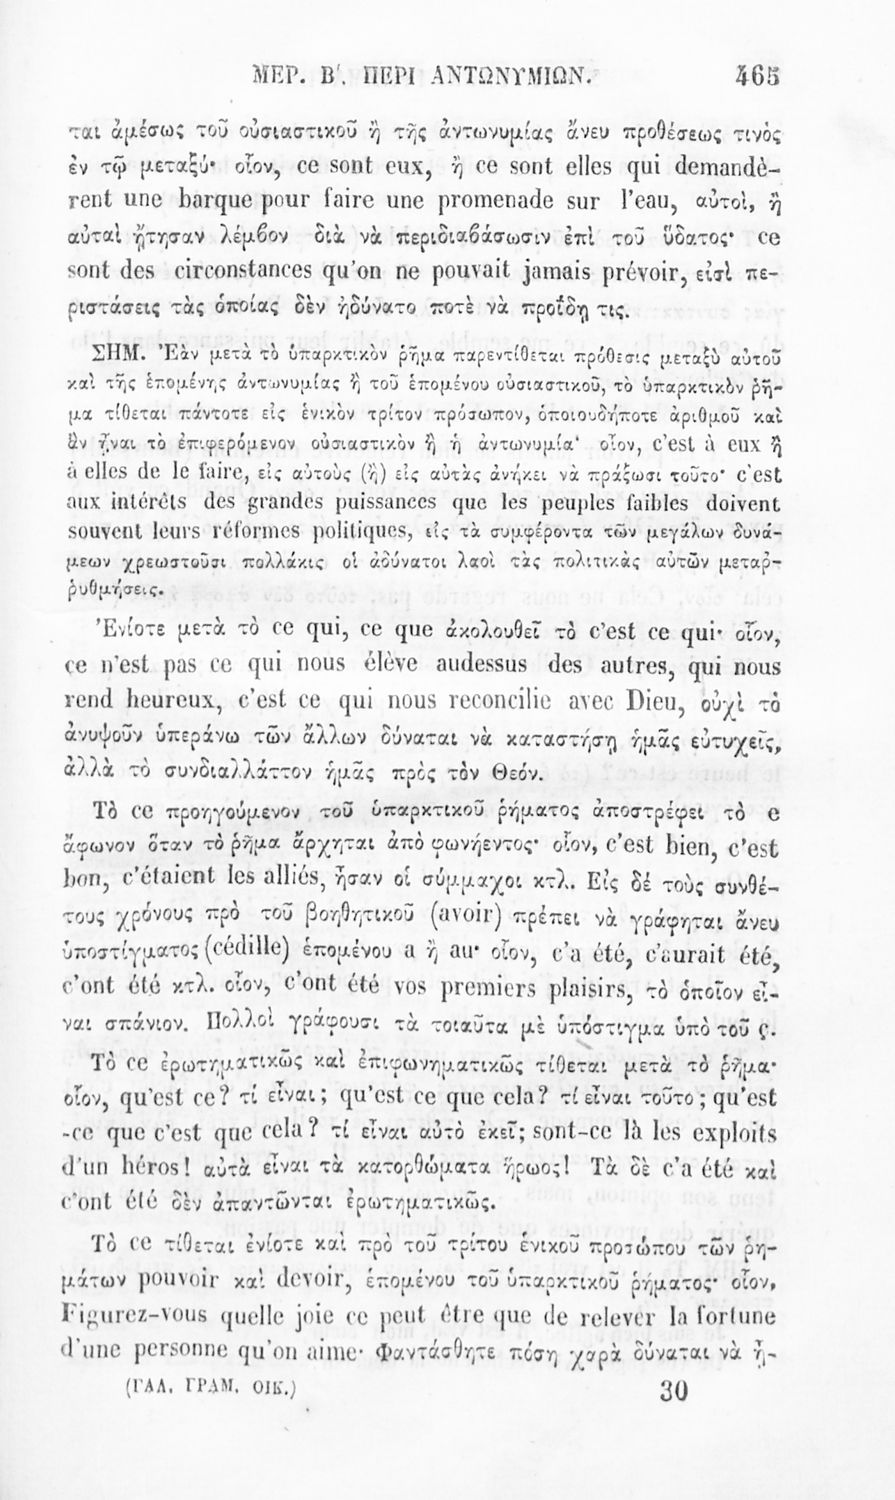 ΜΕΡ. Β΄. ΠΕΡΙ ΑΝΤΩΝΥΜΙΩΝ. 465
ται ἀμέσως τοῦ οὐσιαστικοῦ ἢ τῆς ἀντωνυμίας ἄνευ προθέσεως τινὸς
ἐν τῷ μεταξύ· οἷον, ce sont eux, ἢ ce sont elles qui demandè-
rent une barque pour faire une promenade sur l'eau, αὐτοὶ, ἢ
αὐταὶ ᾔτησαν λέμβον διὰ νὰ περιδιαβάσωσιν ἐπὶ τοῦ ὕδατος· ce
sont des circonstances qu'on ne pouvait jamais prévoir, εἰσὶ πε-
ριστάσεις τὰς ὁποίας δὲν ἠδύνατο ποτὲ νὰ προΐδῃ τις.
ΣΗΜ. Ἐὰν μετὰ τὸ ὑπαρκτικὸν ῥῆμα παρεντίθεται πρόθεσις μεταξὺ αὐτοῦ
καὶ τῆς ἑπομένης ἀντωνυμίας ἢ τοῦ ἑπομένου οὐσιαστικοῦ, τὸ ὑπαρκτικὸν ῥῆ-
μα τίθεται πάντοτε εἰς ἑνικὸν τρίτον πρόσωπον, ὁποιουδήποτε ἀριθμοῦ καὶ
ἂν ᾖναι τὸ ἐπιφερόμενον οὐσιαστικὸν ἢ ἡ ἀντωνυμία· οἷον, c'est à eux ἢ
à elles de le faire, εἰς αὐτοὺς (ἢ) εἰς αὐτὰς ἀνήκει νὰ πράξωσι τοῦτο· c'est
aux intérêts des grandes puissances que les peuples faibles doivent
souvent leurs réformes politiques, εἰς τὰ συμφέροντα τῶν μεγάλων δυνά-
μεων χρεωστοῦσι πολλάκις οἱ ἀδύνατοι λαοὶ τὰς πολιτικὰς αὐτῶν μεταῤ-
ῥυθμήσεις.
Ἐνίοτε μετὰ τὸ ce qui, ce que ἀκολουθεῖ τὸ c'est ce qui· οἷον,
ce n'est pas ce qui nous élève audessus des autres, qui nous
rend heureux, c'est ce qui nous reconcilie avec Dieu, οὐχὶ τὸ
ἀνυψοῦν ὑπεράνω τῶν ἄλλων δύναται νὰ καταστήσῃ ἡμᾶς εὐτυχεῖς,
ἀλλὰ τὸ συνδιαλλάττον ἡμᾶς πρὸς τὸν Θεόν.
Τὸ ce προηγούμενον τοῦ ὑπαρκτικοῦ ῥήματος ἀποστρέφει τὸ e
ἄφωνον ὅταν τὸ ῥῆμα ἄρχηται ἀπὸ φωνήεντος· οἷον, c'est bien, c'est
bon, c'étaient les alliés, ἦσαν οἱ σύμμαχοι κτλ. Εἰς δὲ τοὺς συνθέ-
τους χρόνους πρὸ τοῦ βοηθητικοῦ (avoir) πρέπει νὰ γράφηται ἄνευ
ὑποστίγματος (cédille) ἑπομένου a ἢ au· οἷον, c'a été, c'aurait été,
c'ont été κτλ. οἷον, c'ont été vos premiers plaisirs, τὸ ὁποῖον εἶ-
ναι σπάνιον. Πολλοὶ γράφουσι τὰ τοιαῦτα μὲ ὑπόστιγμα ὑπὸ τοῦ ç.
Τὸ ce ἐρωτηματικῶς καὶ ἐπιφωνηματικῶς τίθεται μετὰ τὸ ῥῆμα·
οἷον, qu'est ce? τί εἶναι; qu'est ce que cela? τί εἶναι τοῦτο; qu'est
-ce que c'est que cela? τί εἶναι αὐτὸ ἐκεῖ; sont-ce là les exploits
d'un héros! αὐτὰ εἶναι τὰ κατορθώματα ἥρωος! Τὰ δὲ c'a été καὶ
c'ont été δὲν ἀπαντῶνται ἐρωτηματικῶς.
Τὸ ce τίθεται ἐνίοτε καὶ πρὸ τοῦ τρίτου ἑνικοῦ προσώπου τῶν ῥη-
μάτων pouvoir καὶ devoir, ἑπομένου τοῦ ὑπαρκτικοῦ ῥήματος· οἷον,
Figurez-vous quelle joie ce peut être que de relever la fortune
d'une personne qu'on aime· Φαντάσθητε πόση χαρὰ δύναται νὰ ᾖ-
(ΓΑΛ. ΓΡΑΜ. ΟΙΚ.) 30